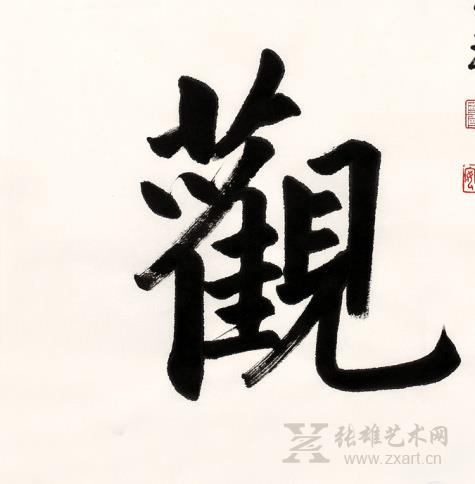 觀
张雄艺术网
www.zxart.cn